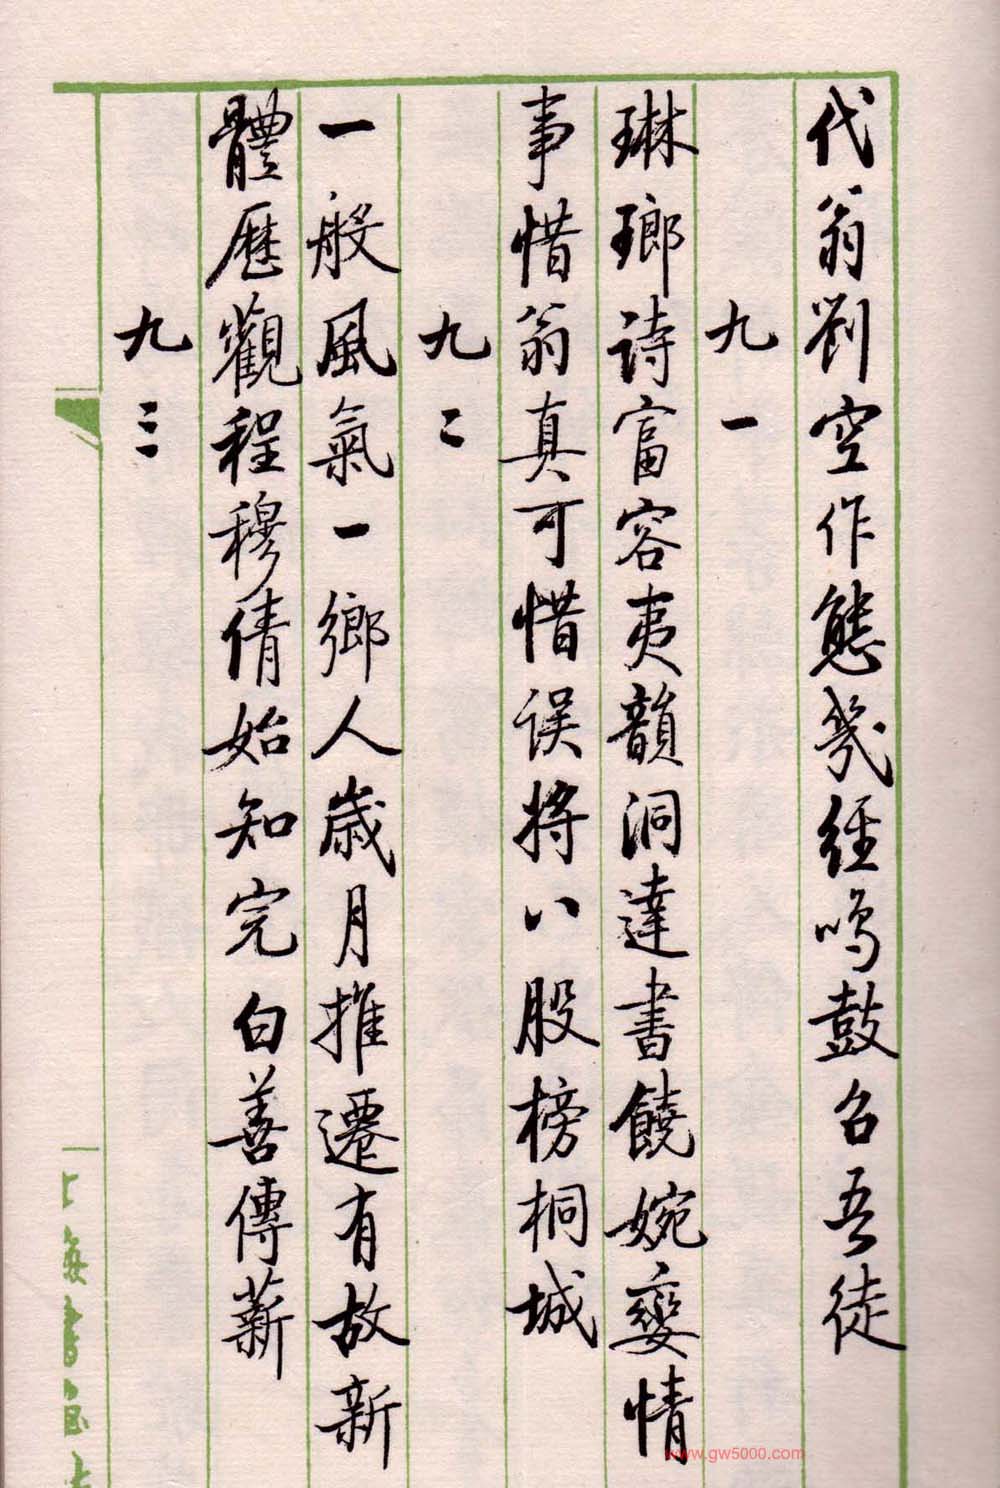 代翁劉空作態幾經鳴鼓召吾徒
九一
琳瑯诗富容夷韻洞達書饒婉孌情
事惜翁真可惜误将八股榜桐城
九二
一般風氣一鄉人歲月推遷有故新
體歷觀程穆倩始知完白善傳薪
九三
海書
www.gw5000.com